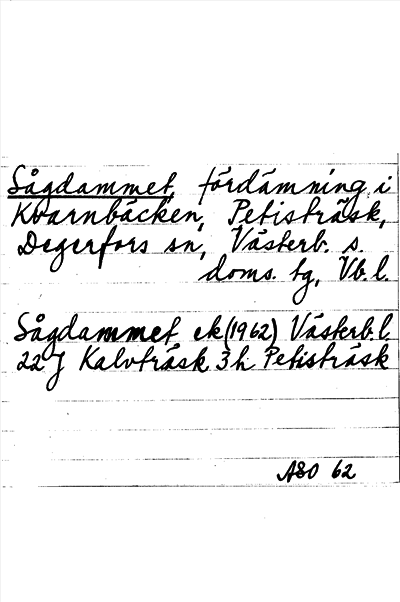 Sågdammet, fördämning i
Kvarnbäcken, Petisträsk,
Degerfors sn, Västerb. s.
doms. tg, Vb. l.
Sågdammet ek (1962) Västerb. l.
22 J Kalvträsk 3h Petisträsk
ASO 62